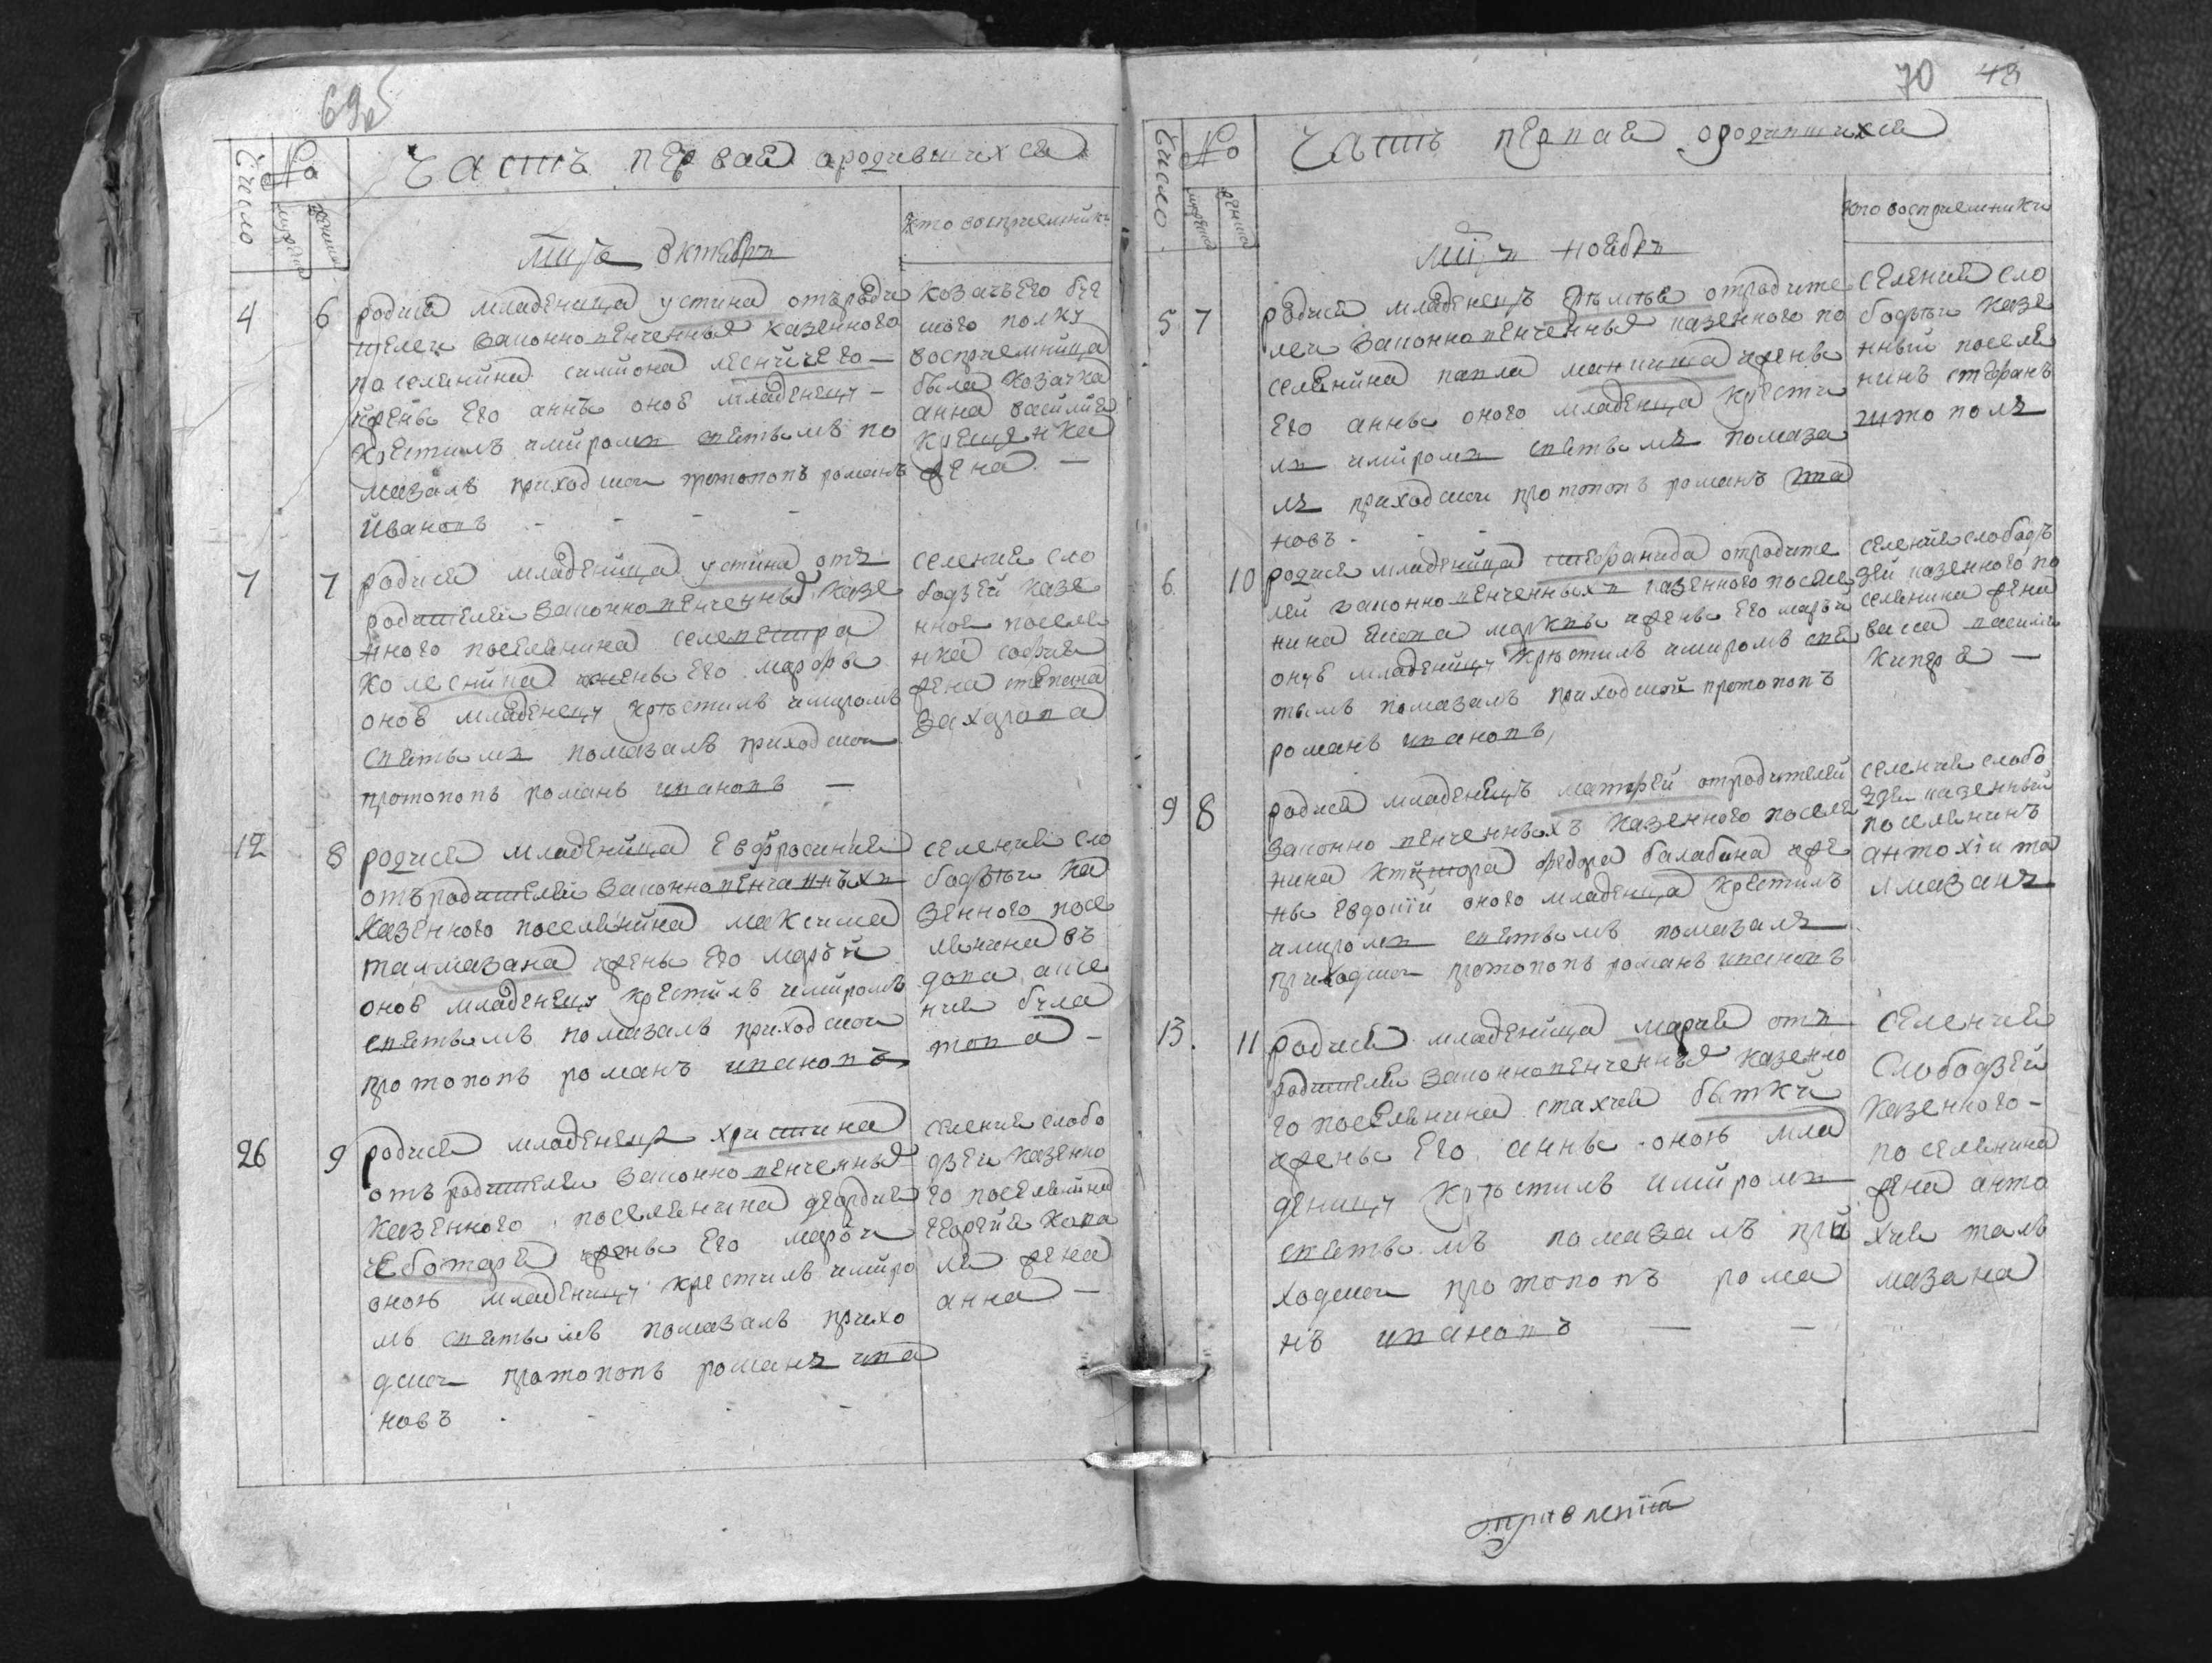 69об
Число
№
мужеска
женска
Часть первая ородившихся
Мцъ Октября
кто восприемники
4 6
родися младеница устина отъроди
телеи законновенченныя казенного
поселянина симиона
жены его анны оное младенецу –
крестилъ имиромъ святымъ по
мазалъ приходскои протопопъ романъ
Ивановъ - - - -
козачьего буг
ского полку
восприемница
была козачка
анна василие
жена —
7 7
родися младеница устина отъ
родителеи законновенченныя казе
нного поселянина селевестра
колесника жены его марфы
оное младенецу крестилъ имиромъ
святымъ помазалъ приходскои
протопопъ романъ ивановъ —
селения сло
бодзей казе
нное поселя
нка софия
жена степана
захарова
12 8
родися младеница Евфросиния
отъродителеи законновенчанныхъ
казенного поселянина максима
талмазана жены его марыи
оное младенецу крестилъ имиромъ
святымъ помазалъ приходскои
протопопъ романъ ивановъ
селения сло
бодзеи ка
зенного посе
лянина въ
26 9
родися младенецъ христина
отъ родителеи законновенченныя
казенного поселянина георгия
чеботаря жены его марыи
оноя младеницу крестилъ имиро
мъ святымъ помазалъ прихо
дскои протопопъ романъ ива
новъ . - - -
селения слобо
дзеи казенно
го поселянина
георгия кова
ля жена
анна —
70 43
Число
№
мужеска
женска
Часть первая ородившихся
Мцъ ноября
кто восприемники
5 7
родися младенецъ отродите
леи законновенченныя казенного по
селянина павла жены
его анны оного младенца крести
лъ имиромъ святымъ помаза
лъ приходскои протопопъ романъ ива
новъ - - -
селения сло
бодзеи казе
нный поселя
нинъ стефанъ
6 10
родися младеница стефанида отродите
лей законновенченныхъ казенного поселя
нина жены его марыи
онуе младеницу крестилъ имиромъ свя
тымъ помазалъ приходской протопопъ
романъ ивановъ,
селения слободъ
зей казенного по
селянина жена
9 8
родися младенецъ матфей отродителей
законно венченныхъ казенного поселя
нина ктитора федора балабана же
ны евдокии оного младенца крестилъ
имиромъ святымъ помазалъ
приходскои протопопъ романъ ивановъ
селения слобо
дзеи казенный
поселянинъ
антохiи та
лмазанъ
13. 11
родися младеница мария отъ
родителей законновенченныя казенно
го поселянина стахия бытки
жены его анны оноя мла
деницу крестилъ имиромъ
святымъ помазалъ при
ходскои протопопъ рома
нъ ивановъ — —
селения
Слободзеи
казенного –
поселянина
жена анто
хия тал
мазана
правления